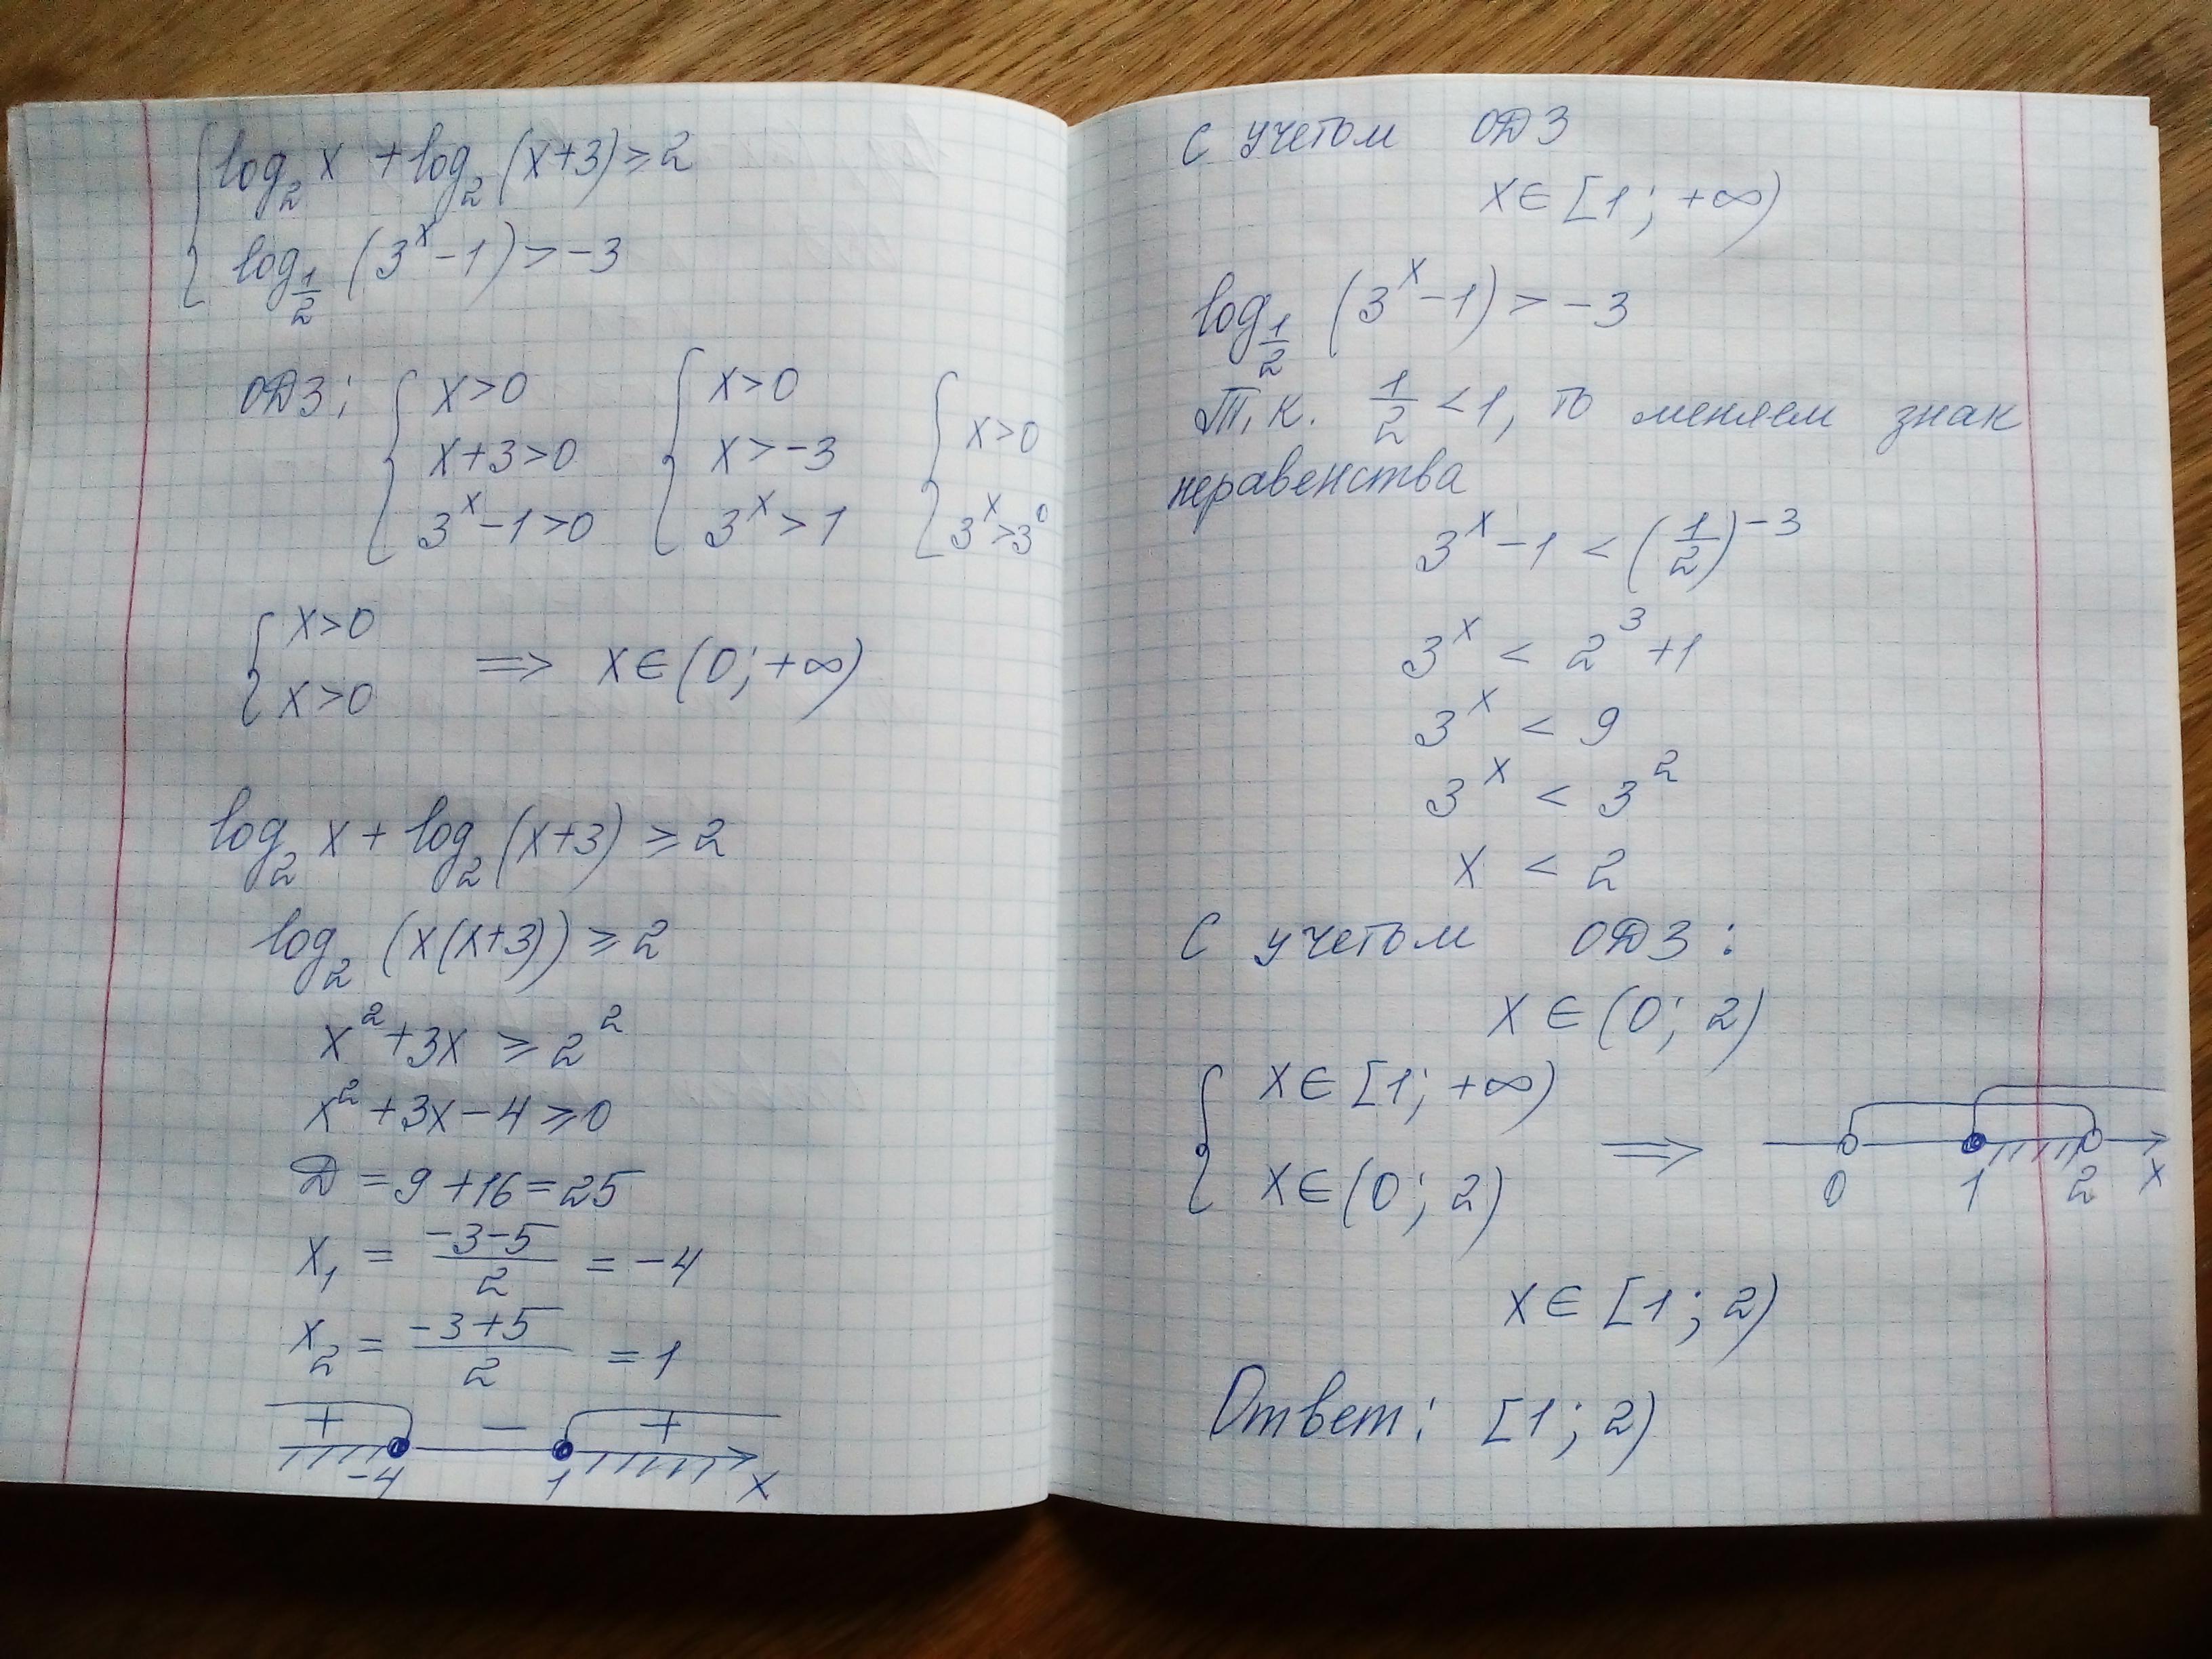 log₂ x + log₂ (x+3) ≥ 2
log_{1/2} (3^x - 1) > -3
ОДЗ: { x>0 { x>0 { x>0
x+3>0 x>-3
3^x - 1 > 0 3^x > 1 3^x > 3^0
{ x>0
x>0 ⇒ x∈(0; +∞)
log₂ x + log₂ (x+3) ≥ 2
log₂ (x(x+3)) ≥ 2
x² + 3x ≥ 2²
x² + 3x - 4 ≥ 0
Д = 9 + 16 = 25
x₁ = (-3-5)/2 = -4
x₂ = (-3+5)/2 = 1
+ − +
-4 1 x
С учетом ОДЗ
x∈[1; +∞)
log_{1/2} (3^x - 1) > -3
Т.к. 1/2 < 1, то меняем знак
неравенства
3^x - 1 < (1/2)^{-3}
3^x < 2³ + 1
3^x < 9
3^x < 3²
x < 2
С учетом ОДЗ:
x∈(0; 2)
{ x∈[1; +∞)
x∈(0; 2) ⇒ 0 1 2 x
x∈[1; 2)
Ответ: [1; 2)